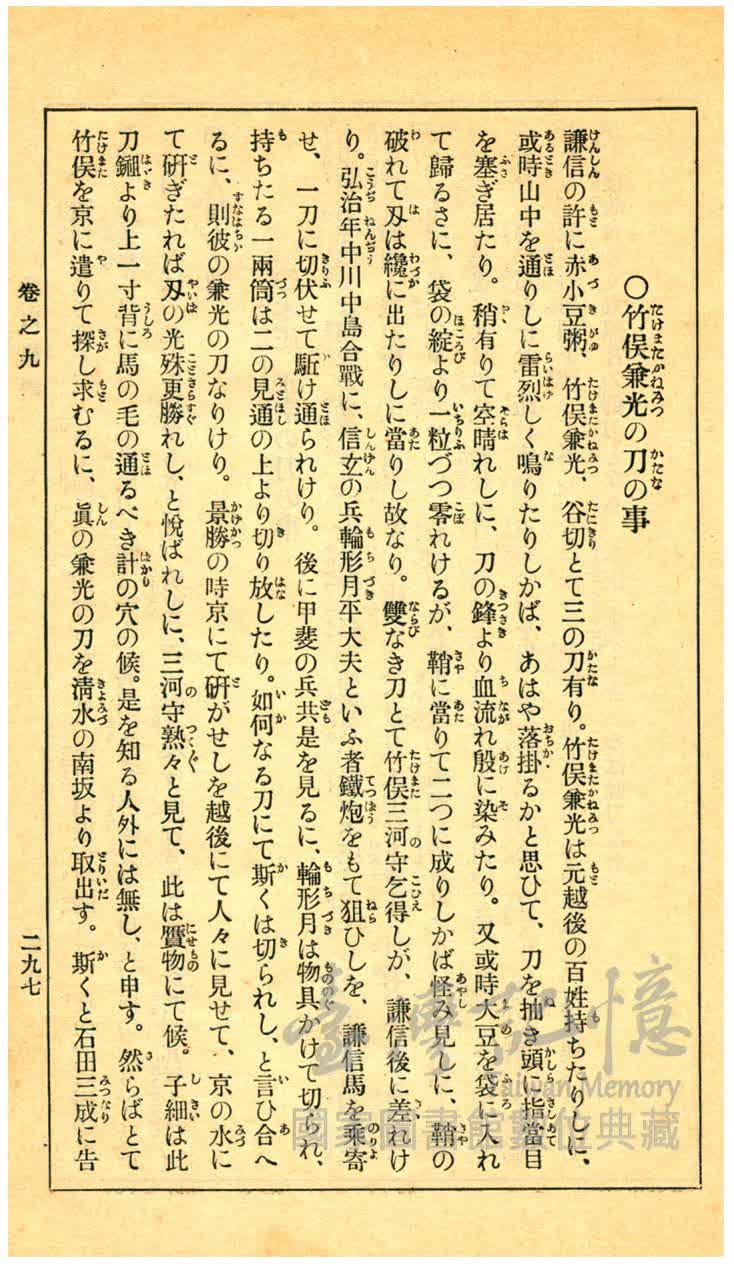 〇竹俣兼光の刀の事
謙信の許に赤小豆粥、竹俣兼光、谷切とて三の刀有り。竹俣兼光は元越後の百姓持ちたりしに、
或時山中を通りしに雷烈しく鳴りたりしかば、あはや落掛るかと思ひて、刀を抽き頭に指當目
を塞ぎ居たり。稍有りて空晴れしに、刀の鋒より血流れ殷に染みたり。又或時大豆を袋に入れ
て歸るさに、袋の綻より一粒づつ零れけるが、鞘に當りて二つに成りしかば怪み見しに、鞘の
破れて刄は纔に出たりしに當りし故なり。雙なき刀とて竹俣三河守乞得しが、謙信後に差れけ
り。弘治年中川中島合戰に、信玄の兵輪形月平大夫といふ者鐵炮をもて狙ひしを、謙信馬を乘寄
せ、一刀に切伏せて駈け通られけり。後に甲斐の兵共是を見るに、輪形月は物具かけて切られ、
持ちたる一兩筒は二の見通の上より切り放したり。如何なる刀にて斯くは切られし、と言ひ合へ
るに、則彼の兼光の刀なりけり。景勝の時京にて硏がせしを越後にて人々に見せて、京の水に
て硏ぎたれば刄の光殊更勝れし、と悅ばれしに、三河守熟々と見て、此は贋物にて候。子細は此
刀鎺より上一寸背に馬の毛の通るべき計の穴の候。是を知る人外には無し、と申す。然らばとて
竹俣を京に遣りて探し求むるに、眞の兼光の刀を淸水の南坂より取出す。斯くと石田三成に告
卷之九
二九七
臺灣記憶
Taiwan Memory
國家圖書館數位典藏